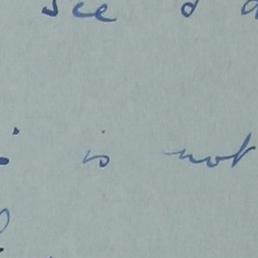 see d
is not